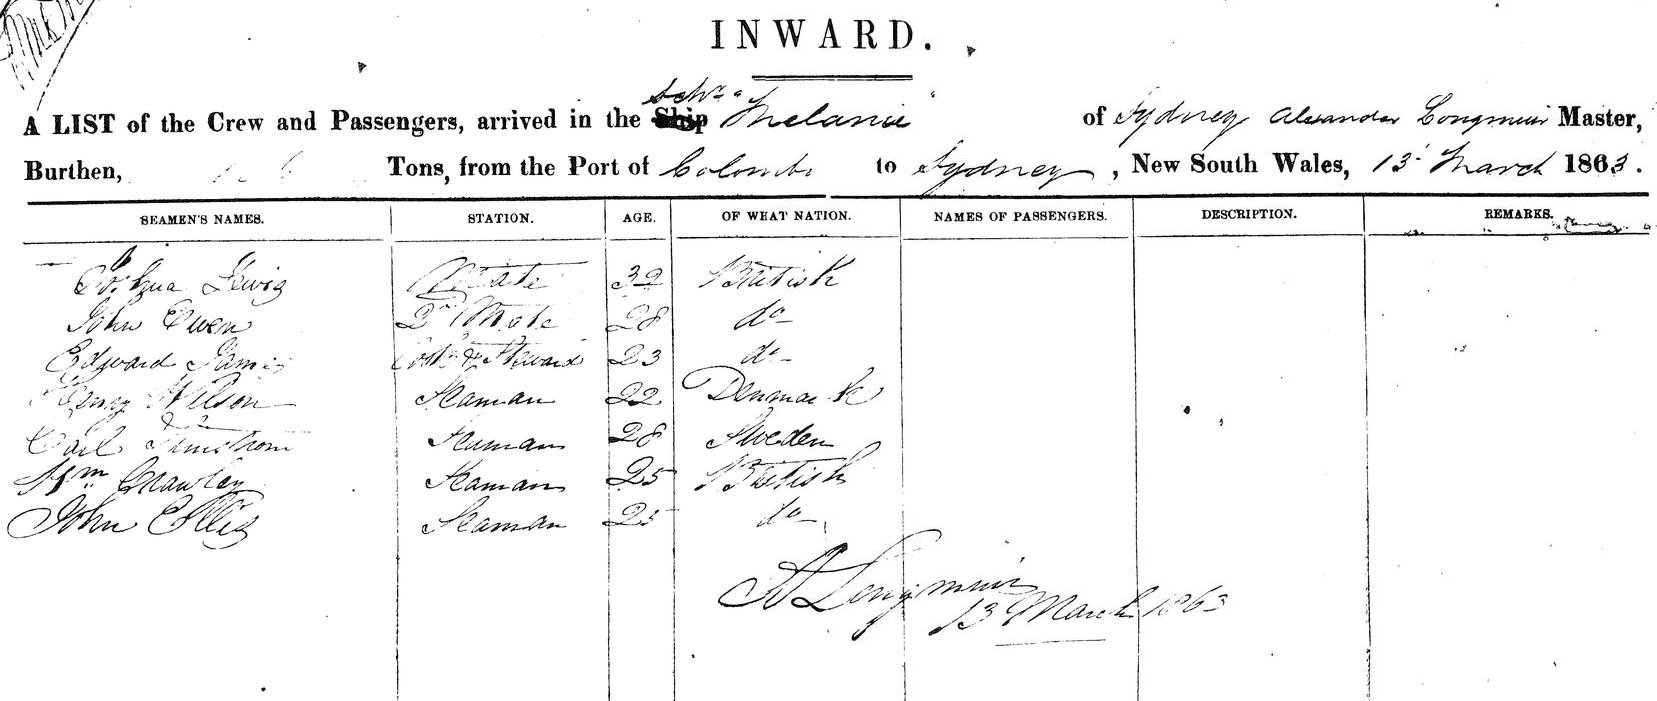 INWARD.
A LIST of the Crew and Passengers, arrived in the Ship Schr "Melanie" of Sydney Alexander Longmuir Master,
Burthen, Tons, from the Port of Colombo to Sydney, New South Wales, 13 March 1863.
SEAMEN'S NAMES. STATION. AGE. OF WHAT NATION. NAMES OF PASSENGERS. DESCRIPTION. REMARKS.
Joshua Lewis Mate 32 British
John Owen 2d Mate 28 do
Edward James Cook & Steward 23 do
Henry Wilson Seaman 22 Denmark
Carl Seaman 28 Sweden
Wm Crawley Seaman 25 British
John Ellis Seaman 25 do
A Longmuir
13 March 1863